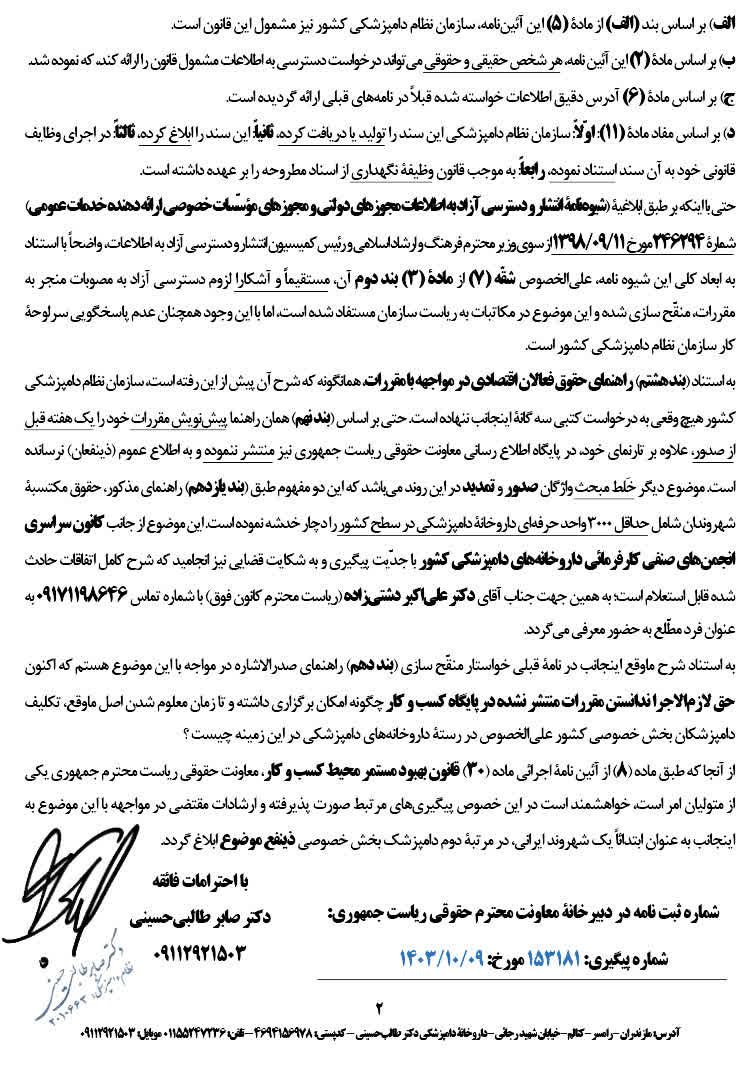 الف) بر اساس بند (الف) از مادۀ (۵) این آئین‌نامه، سازمان نظام دامپزشکی کشور نیز مشمول این قانون است.
ب) بر اساس مادۀ (۲) این آئین نامه، هر شخص حقیقی و حقوقی می‌تواند درخواست دسترسی به اطلاعات مشمول قانون را ارائه کند، که نموده شد.
ج) بر اساس مادۀ (۶) آدرس دقیق اطلاعات خواسته شده قبلاً در نامه‌های قبلی ارائه گردیده است.
د) بر اساس مفاد مادۀ (۱۱): اوّلاً: سازمان نظام دامپزشکی این سند را تولید یا دریافت کرده، ثانیاً: این سند را ابلاغ کرده، ثالثاً: در اجرای وظایف
قانونی خود به آن سند استناد نموده، رابعاً: به موجب قانون وظیفۀ نگهداری از اسناد مطروحه را بر عهده داشته است.
حتی با اینکه بر طبق ابلاغیۀ (شیوه‌نامۀ انتشار و دسترسی آزاد به اطلاعات مجوزهای دولتی و مجوزهای مؤسّسات خصوصی ارائه دهنده خدمات عمومی)
شمارۀ ۲۴۶۲۹۴ مورخ ۱۳۹۸/۰۹/۱۱ از سوی وزیر محترم فرهنگ و ارشاد اسلامی و رئیس کمیسیون انتشار و دسترسی آزاد به اطلاعات، واضحاً با استناد
به ابعاد کلی این شیوه نامه، علی‌الخصوص شقّه (۷) از مادۀ (۳) بند دوم آن، مستقیماً و آشکارا لزوم دسترسی آزاد به مصوبات منجر به
مقررات، منقّح سازی شده و این موضوع در مکاتبات به ریاست سازمان مستفاد شده است، اما با این وجود همچنان عدم پاسخگویی سرلوحۀ
کار سازمان نظام دامپزشکی کشور است.
به استناد (بند هشتم) راهنمای حقوق فعالان اقتصادی در مواجهه با مقررات، همانگونه که شرح آن پیش از این رفته است، سازمان نظام دامپزشکی
کشور هیچ وقعی به درخواست کتبی سه گانۀ اینجانب ننهاده است. حتی بر اساس (بند نهم) همان راهنما پیش‌نویش مقررات خود را یک هفته قبل
از صدور، علاوه بر تارنمای خود، در پایگاه اطلاع رسانی معاونت حقوقی ریاست جمهوری نیز منتشر ننموده و به اطلاع عموم (ذینفعان) نرسانده
است. موضوع دیگر خَلط مبحث واژگان صدور و تمدید در این روند می‌باشد که این دو مفهوم طبق (بند یازدهم) راهنمای مذکور، حقوق مکتسبۀ
شهروندان شامل حداقل ۳۰۰۰ واحد حرفه‌ای داروخانۀ دامپزشکی در سطح کشور را دچار خدشه نموده است. این موضوع از جانب کانون سراسری
انجمن‌های صنفی کارفرمائی داروخانه‌های دامپزشکی کشور با جدّیت پیگیری و به شکایت قضایی نیز انجامید که شرح کامل اتفاقات حادث
شده قابل استعلام است؛ به همین جهت جناب آقای دکتر علی‌اکبر دشتی‌زاده (ریاست محترم کانون فوق) با شماره تماس ۰۹۱۷۱۱۹۸۶۴۶ به
عنوان فرد مطلّع به حضور معرفی می‌گردد.
به استناد شرح ماوقع اینجانب در نامۀ قبلی خواستار منقّح سازی (بند دهم) راهنمای صدرالاشاره در مواجه با این موضوع هستم که اکنون
حق لازم‌الاجرا ندانستن مقررات منتشر نشده در پایگاه کسب و کار چگونه امکان برگزاری داشته و تا زمان معلوم شدن اصل ماوقع، تکلیف
دامپزشکان بخش خصوصی کشور علی‌الخصوص در رستۀ داروخانه‌های دامپزشکی در این زمینه چیست؟
از آنجا که طبق ماده (۸) از آئین نامۀ اجرائی ماده (۳۰) قانون بهبود مستمر محیط کسب و کار، معاونت حقوقی ریاست محترم جمهوری یکی
از متولیان امر است، خواهشمند است در این خصوص پیگیری‌های مرتبط صورت پذیرفته و ارشادات مقتضی در مواجهه با این موضوع به
اینجانب به عنوان ابتدائاً یک شهروند ایرانی، در مرتبۀ دوم دامپزشک بخش خصوصی ذینفع موضوع ابلاغ گردد.
با احترامات فائقه
دکتر صابر طالبی‌حسینی
۰۹۱۱۲۹۲۱۵۰۳
دکتر صابر طالبی حسینی
نظام دامپزشکی: ۲۰۱۰۶۶۳
شماره ثبت نامه در دبیرخانۀ معاونت محترم حقوقی ریاست جمهوری:
شماره پیگیری: ۱۵۳۱۸۱ مورخ: ۱۴۰۳/۱۰/۰۹
۲
آدرس: مازندران – رامسر – کتالم – خیابان شهید رجائی – داروخانۀ دامپزشکی دکتر طالب‌حسینی – کدپستی: ۴۶۹۴۱۵۶۹۷۸ – تلفن: ۰۱۱۵۵۲۴۷۲۳۶ موبایل: ۰۹۱۱۲۹۲۱۵۰۳